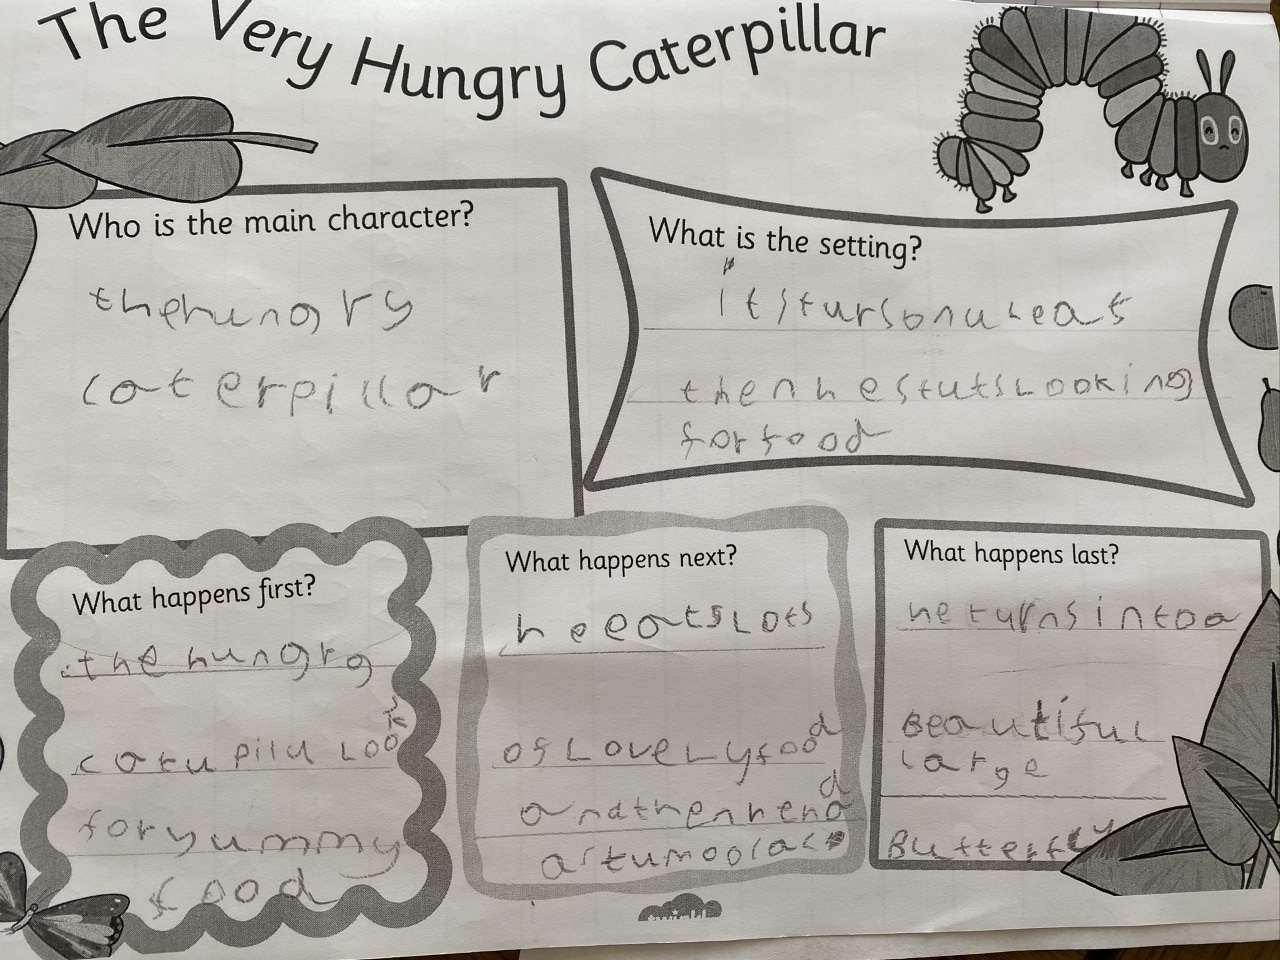 The Very Hungry Caterpillar
Who is the main character?
thehungry
caterpillar
What is the setting?
itstursonaleaf
thenhestutsLooking
forfood
What happens first?
thehungrg
catupilu Look
foryummy
food
What happens next?
heeatsLots
ofLoveLyfood
andthenhe
What happens last?
he turnsintoa
Beautiful
large
Butterfly